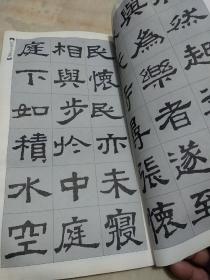 起
與為樂者遂至
尋張懷
民懷民亦未寢
相與步於中庭
庭下如積水空